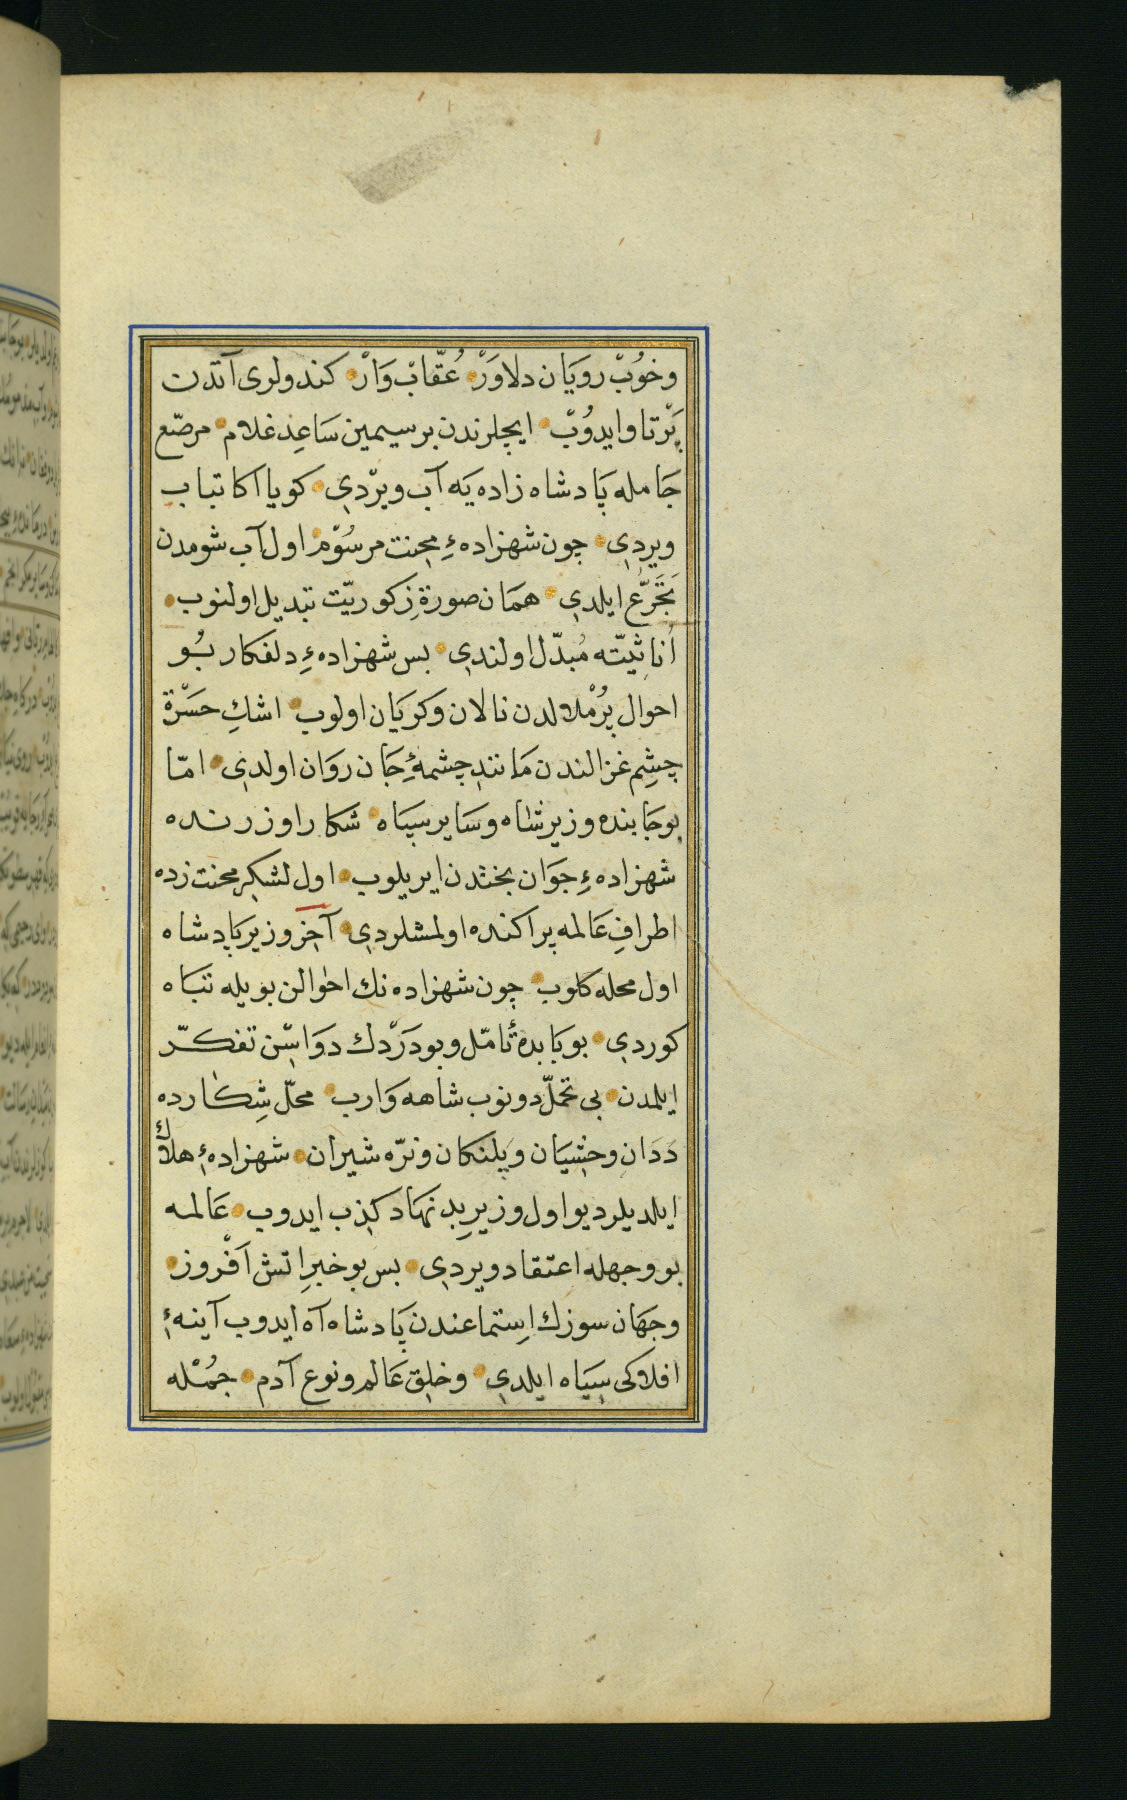 وخُوبْ رويَان دلاوَرْ عُقّابْ وَارْ كندولرى آتدن
پَرْتاو ايدوُبْ ايچلرندن بر سيمين سَاعِد غلام مرصّع
جَامله پَادشاه زاده يَه آب ويرْدي كويا اكا تباب
ويردي چون شهزادهءِ مِحنت مرسُوْم اول آب شومدن
تَجَرُّع ايلدي همَان صورةِ زكوريّت تبديل اولنوب
اُناثِيّته مُبدّل اولندي بس شهزادهءِ دلفكار بُو
احوال پُرْملالدن نالان وكريَان اولوب اشكِ حسَرْة
چشِم غزالندن مَانندِ چشمهٔ جَان روَان اولدي امّا
بو جَابنده وزير شاه وسَاير سپَاه شكار اوزرنده
شهزادهءِ جوَان بختدن ايريلوب اول لشكرِ محنت زده
اطرافِ عَالمه پراكنده اولمشلردي آخِر وزير پَادشاه
اول محله كلوب چون شهزاده نك احوالن بويله تبَاه
كوردي بو بَابده تأمّل وبو دَرْدك دوَاسِن تفكّر
ايلمدن بى تحمّل دونوب شاهه وَارب محلّ شِكارده
دَدَان وحشِيَان وپلنكان ونرّه شيران شهزادهءِ هلاك
ايلديلر ديو اول وزيرِ بد نهَاد كذِب ايدوب عَالمه
بو وجهله اعتقاد ويردي بس بو خبرِ اتش اَفْروز
وجهَان سوزك اِستماعندن پَادشاه آه ايدوب آينهءِ
افلاكى سِيَاه ايلدي وخلِق عَالم ونوع آدم جمُله